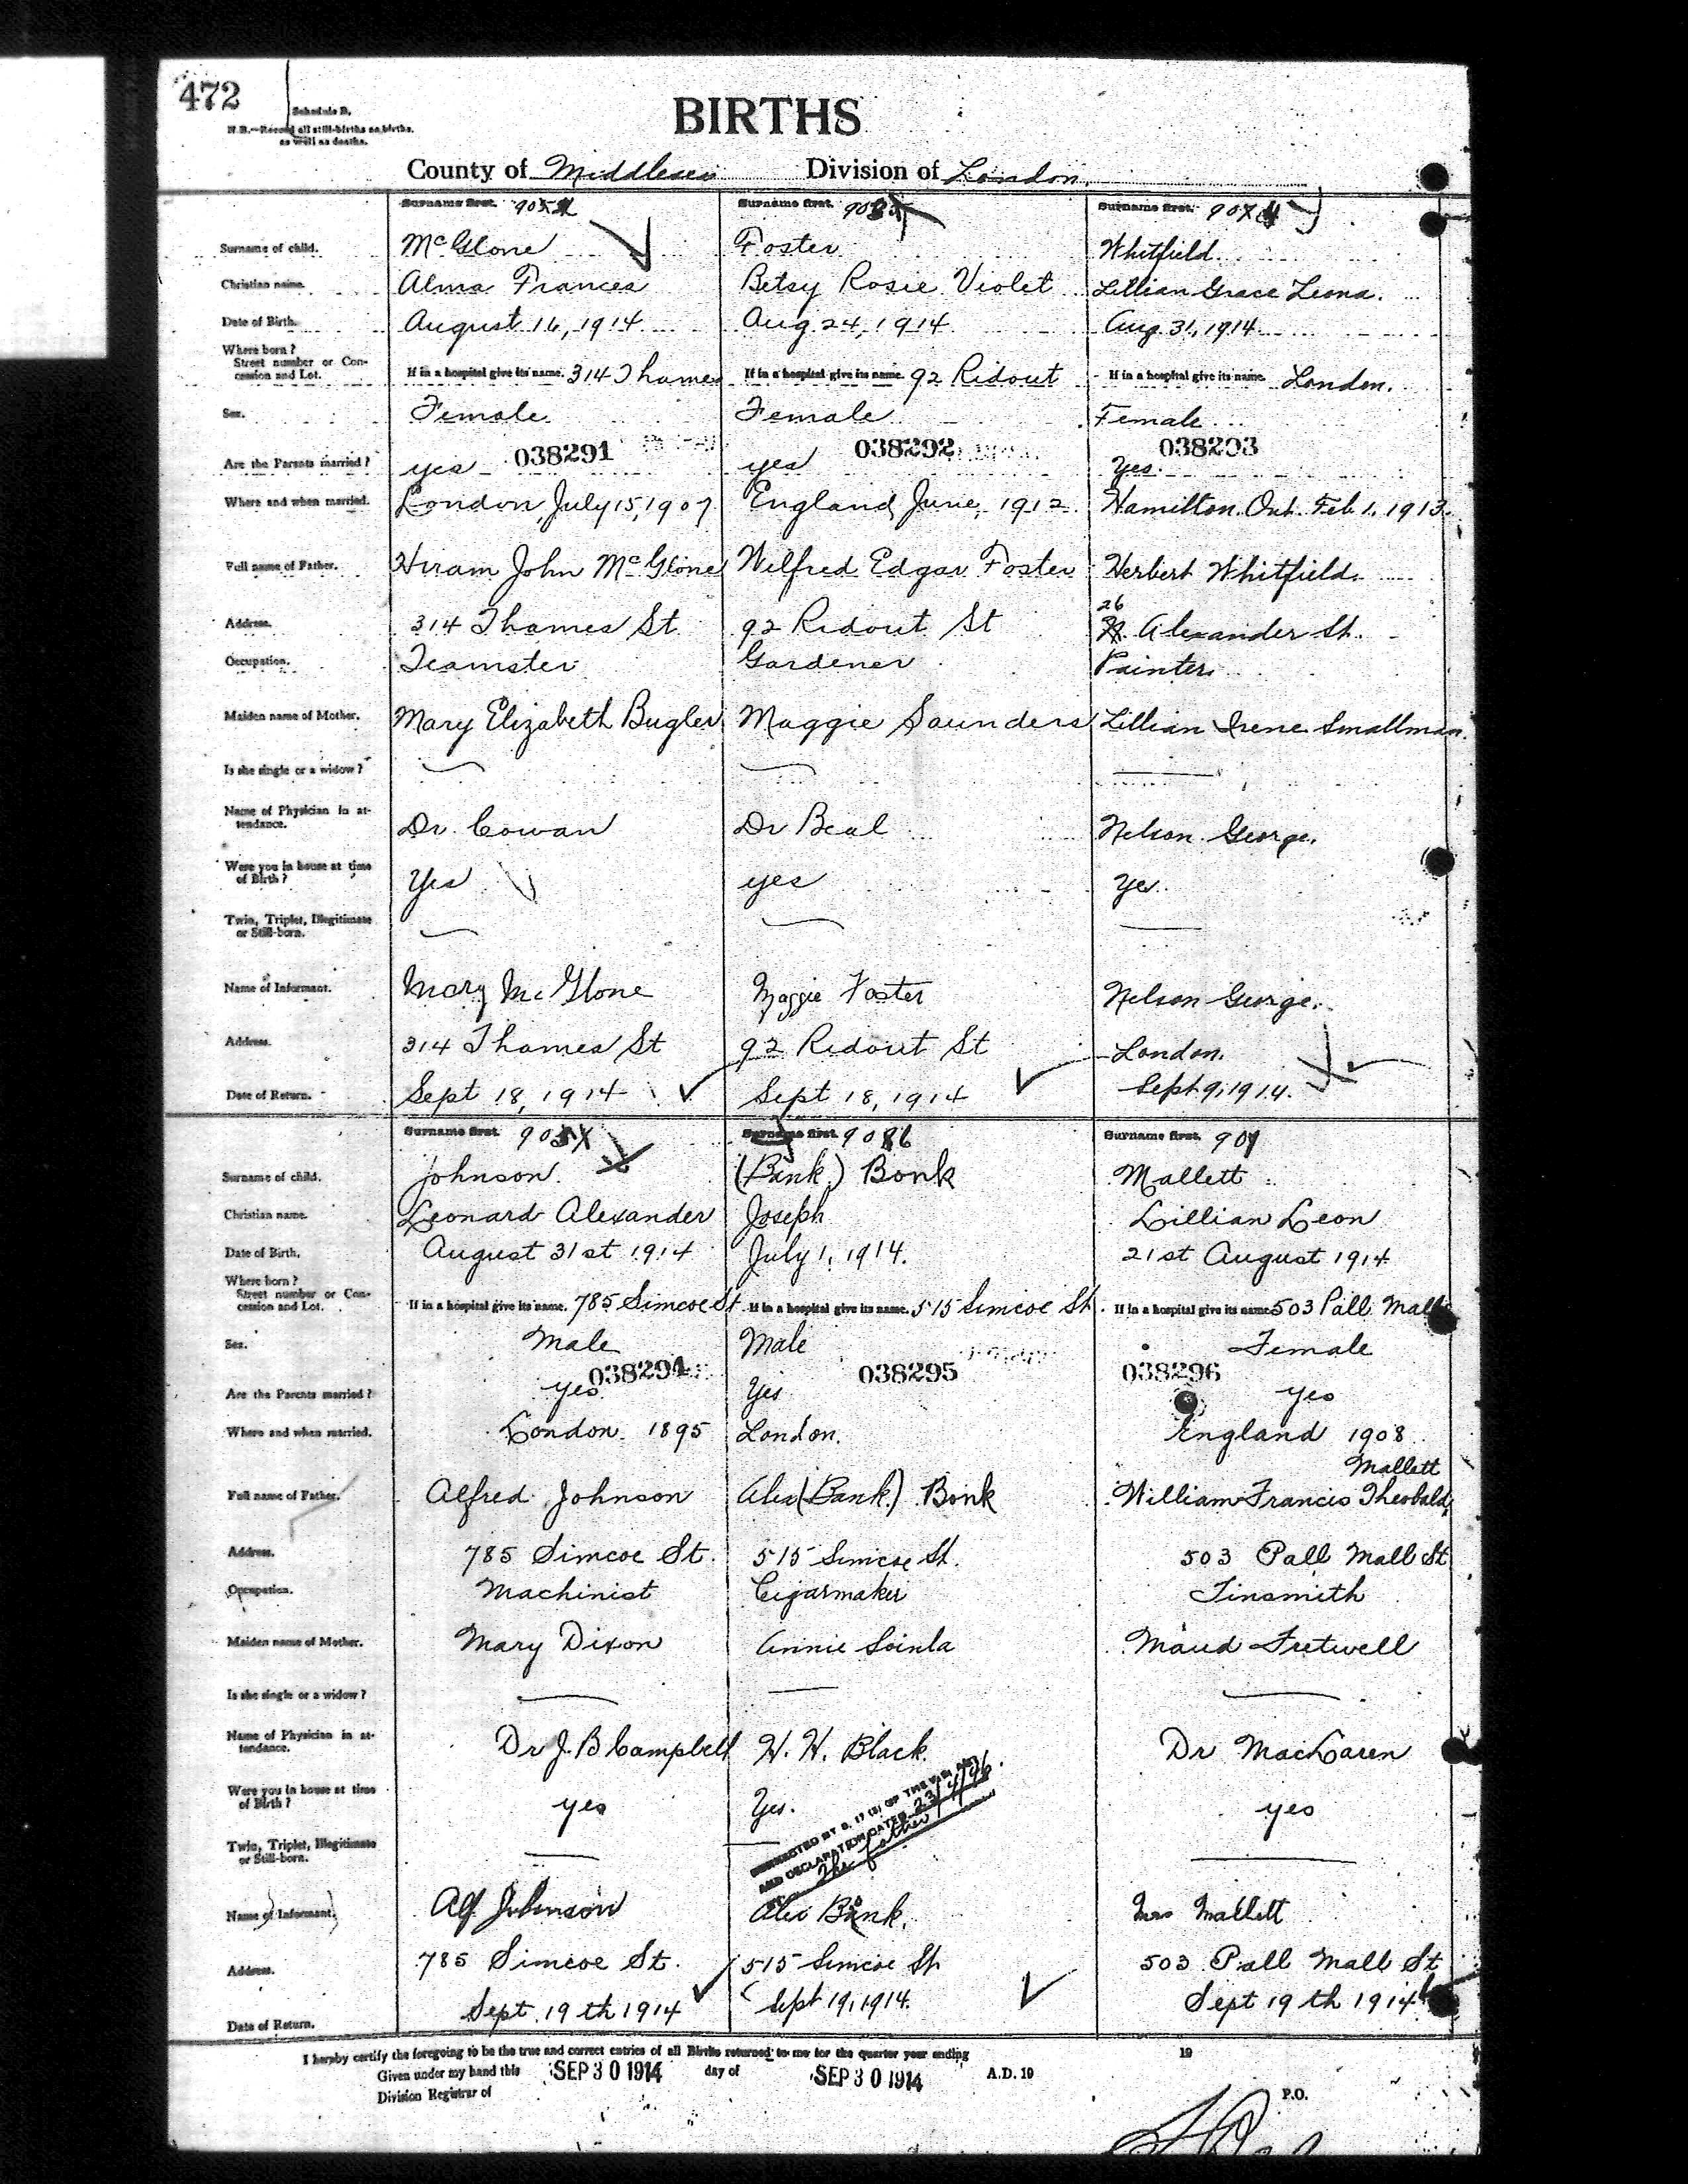 472
Schedule B.
N.B.—Record all still-births as births.
as well as deaths.
BIRTHS
County of Middlesex Division of London.
Surname first. Surname first. Surname first.
Surname of child. McGlone Foster Whitfield.
Christian name. Alma Frances Betsy Rosie Violet Lillian Grace Leona.
Date of Birth. August 16, 1914 Aug 24, 1914 Aug. 31, 1914
Where born?
Street number or Con-
cession and Lot. If in a hospital give its name. 314 Thames If in a hospital give its name. 92 Ridout If in a hospital give its name. London.
Sex. Female Female Female
038291 038292 038293
Are the Parents married? yes yes Yes.
Where and when married. London, July 15, 1907 England, June, 1912 Hamilton. Ont. Feb 1. 1913.
Full name of Father. Hiram John McGlone Wilfred Edgar Foster Herbert Whitfield.
26
Address. 314 Thames St. 92 Ridout St Alexander St.
Occupation. Teamster Gardener Painter.
Maiden name of Mother. Mary Elizabeth Bugler Maggie Saunders Lillian Irene Smallman.
Is she single or a widow?
Name of Physician in at-
tendance. Dr. Cowan Dr Beal Nelson George.
Were you in house at time
of Birth? Yes yes Yes.
Twin, Triplet, Illegitimate
or Still-born.
Name of Informant. Mary McGlone Maggie Foster Nelson George.
Address. 314 Thames St 92 Ridout St London.
Date of Return. Sept 18, 1914 Sept 18, 1914 Sept. 9, 1914.
Surname first. Surname first. Surname first.
Surname of child. Johnson. (Bank.) Bonk Mallett
Christian name. Leonard Alexander Joseph Lillian Leon
Date of Birth. August 31st 1914 July 1, 1914. 21st August 1914
Where born?
Street number or Con-
cession and Lot. If in a hospital give its name. 785 Simcoe St If in a hospital give its name. 515 Simcoe St. If in a hospital give its name 503 Pall Mall
Sex. Male Male Female
038294 038295 038296
Are the Parents married? yes Yes yes
Where and when married. London. 1895 London. England 1908
Mallett
Full name of Father. Alfred Johnson Alex (Bank.) Bonk William Francis Theobald
Address. 785 Simcoe St. 515 Simcoe St. 503 Pall Mall St
Occupation. Machinist Cigarmaker Tinsmith
Maiden name of Mother. Mary Dixon Annie Maud Fretwell
Is she single or a widow?
Name of Physician in at-
tendance. Dr J. B Campbell H. H. Black. Dr MacLaren
Were you in house at time
of Birth? yes Yes. yes
CORRECTED BY S. 17 (2) OF THE
AND DECLARATION DATED 23/4/46.
The father
Twin, Triplet, Illegitimate
or Still-born.
Name of Informant. Alf Johnson Alex Bonk. Mrs Mallett
Address. 785 Simcoe St. 515 Simcoe St 503 Pall Mall St
Date of Return. Sept. 19th 1914 Sept 19, 1914. Sept 19th 1914
I hereby certify the foregoing to be the true and correct entries of all Births returned to me for the quarter year ending 19
Given under my hand this SEP 30 1914 day of SEP 30 1914 A.D. 19
Division Registrar of P.O.